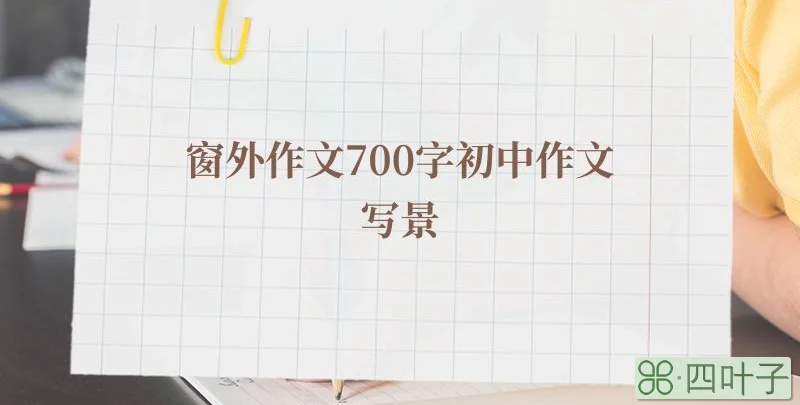 窗外作文700字初中作文
写景
四叶子